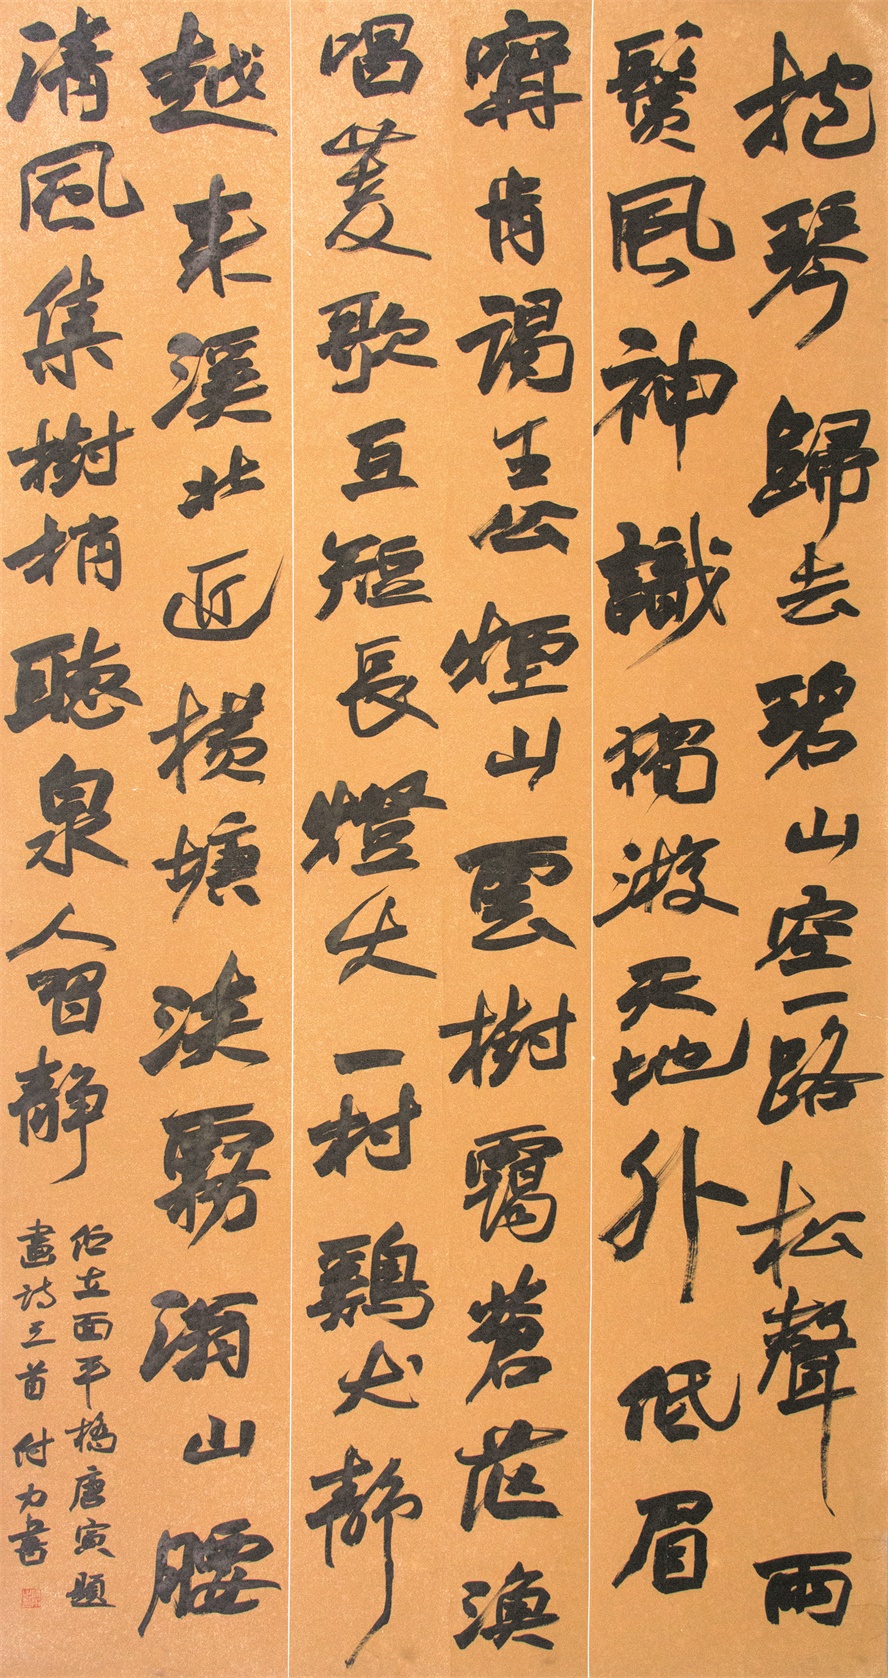 抱琴歸去碧山空一路松聲雨
鬢風神識獨游天地外低眉
寧肯謁王公煙山雲樹靄蒼茫漁
唱菱歌互短長燈火一村鷄犬靜
越来溪北近橫塘淡霧滃山腰
清風集樹梢聽泉人習靜
佇立面平橋唐寅題
畫詩三首付力書